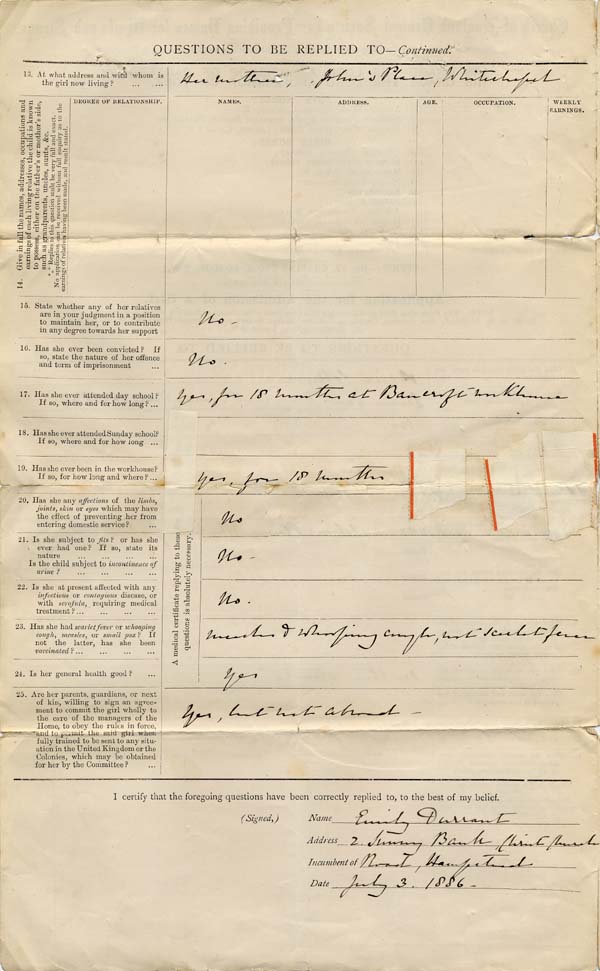 QUESTIONS TO BE REPLIED TO—Continued.
13. At what address and with whom is
the girl now living? ... ...
Her mother, John's Place, Whitechapel
14. Give in full the names, addresses, occupations and
earnings of each living relative the child is known
to possess, either on the father's or mother's side,
such as grandparents, uncles, aunts, &c.
*** Replies to this question must be very full and exact.
No application can be received without full enquiry as to the
earnings of relatives having been made, and result stated.
DEGREE OF RELATIONSHIP.
NAMES.
ADDRESS.
AGE.
OCCUPATION.
WEEKLY
EARNINGS.
15. State whether any of her relatives
are in your judgment in a position
to maintain her, or to contribute
in any degree towards her support
No -
16. Has she ever been convicted? If
so, state the nature of her offence
and term of imprisonment ...
No.
17. Has she ever attended day school?
If so, where and for how long? ...
Yes, for 18 months at Bancroft workhouse
18. Has she ever attended Sunday school?
If so, where and for how long ...
19. Has she ever been in the workhouse?
If so, for how long and where? ...
Yes, for 18 months
A medical certificate replying to these
questions is absolutely necessary.
20. Has she any affections of the limbs,
joints, skin or eyes which may have
the effect of preventing her from
entering domestic service? ...
No
21. Is she subject to fits? or has she
ever had one? If so, state its
nature ... ... ... ...
Is the child subject to incontinence of
urine? ... ... ... ...
No -
22. Is she at present affected with any
infectious or contagious disease, or
with scrofula, requiring medical
treatment? ... ... ... ...
No.
23. Has she had scarlet fever or whooping
cough, measles, or small pox? If
not the latter, has she been
vaccinated? ... ... ... ...
measles & whooping cough, not scarlet fever
24. Is her general health good? ...
Yes
25. Are her parents, guardians, or next
of kin, willing to sign an agree-
ment to commit the girl wholly to
the care of the managers of the
Home, to obey the rules in force,
and to permit the said girl when
fully trained to be sent to any situ-
ation in the United Kingdom or the
Colonies, which may be obtained
for her by the Committee? ...
Yes, but not abroad -
I certify that the foregoing questions have been correctly replied to, to the best of my belief.
(Signed,) Name Emily Durrant
Address 2. Sunny Bank, Christ Church
Incumbent of Road, Hampstead
Date July 3. 1886 -